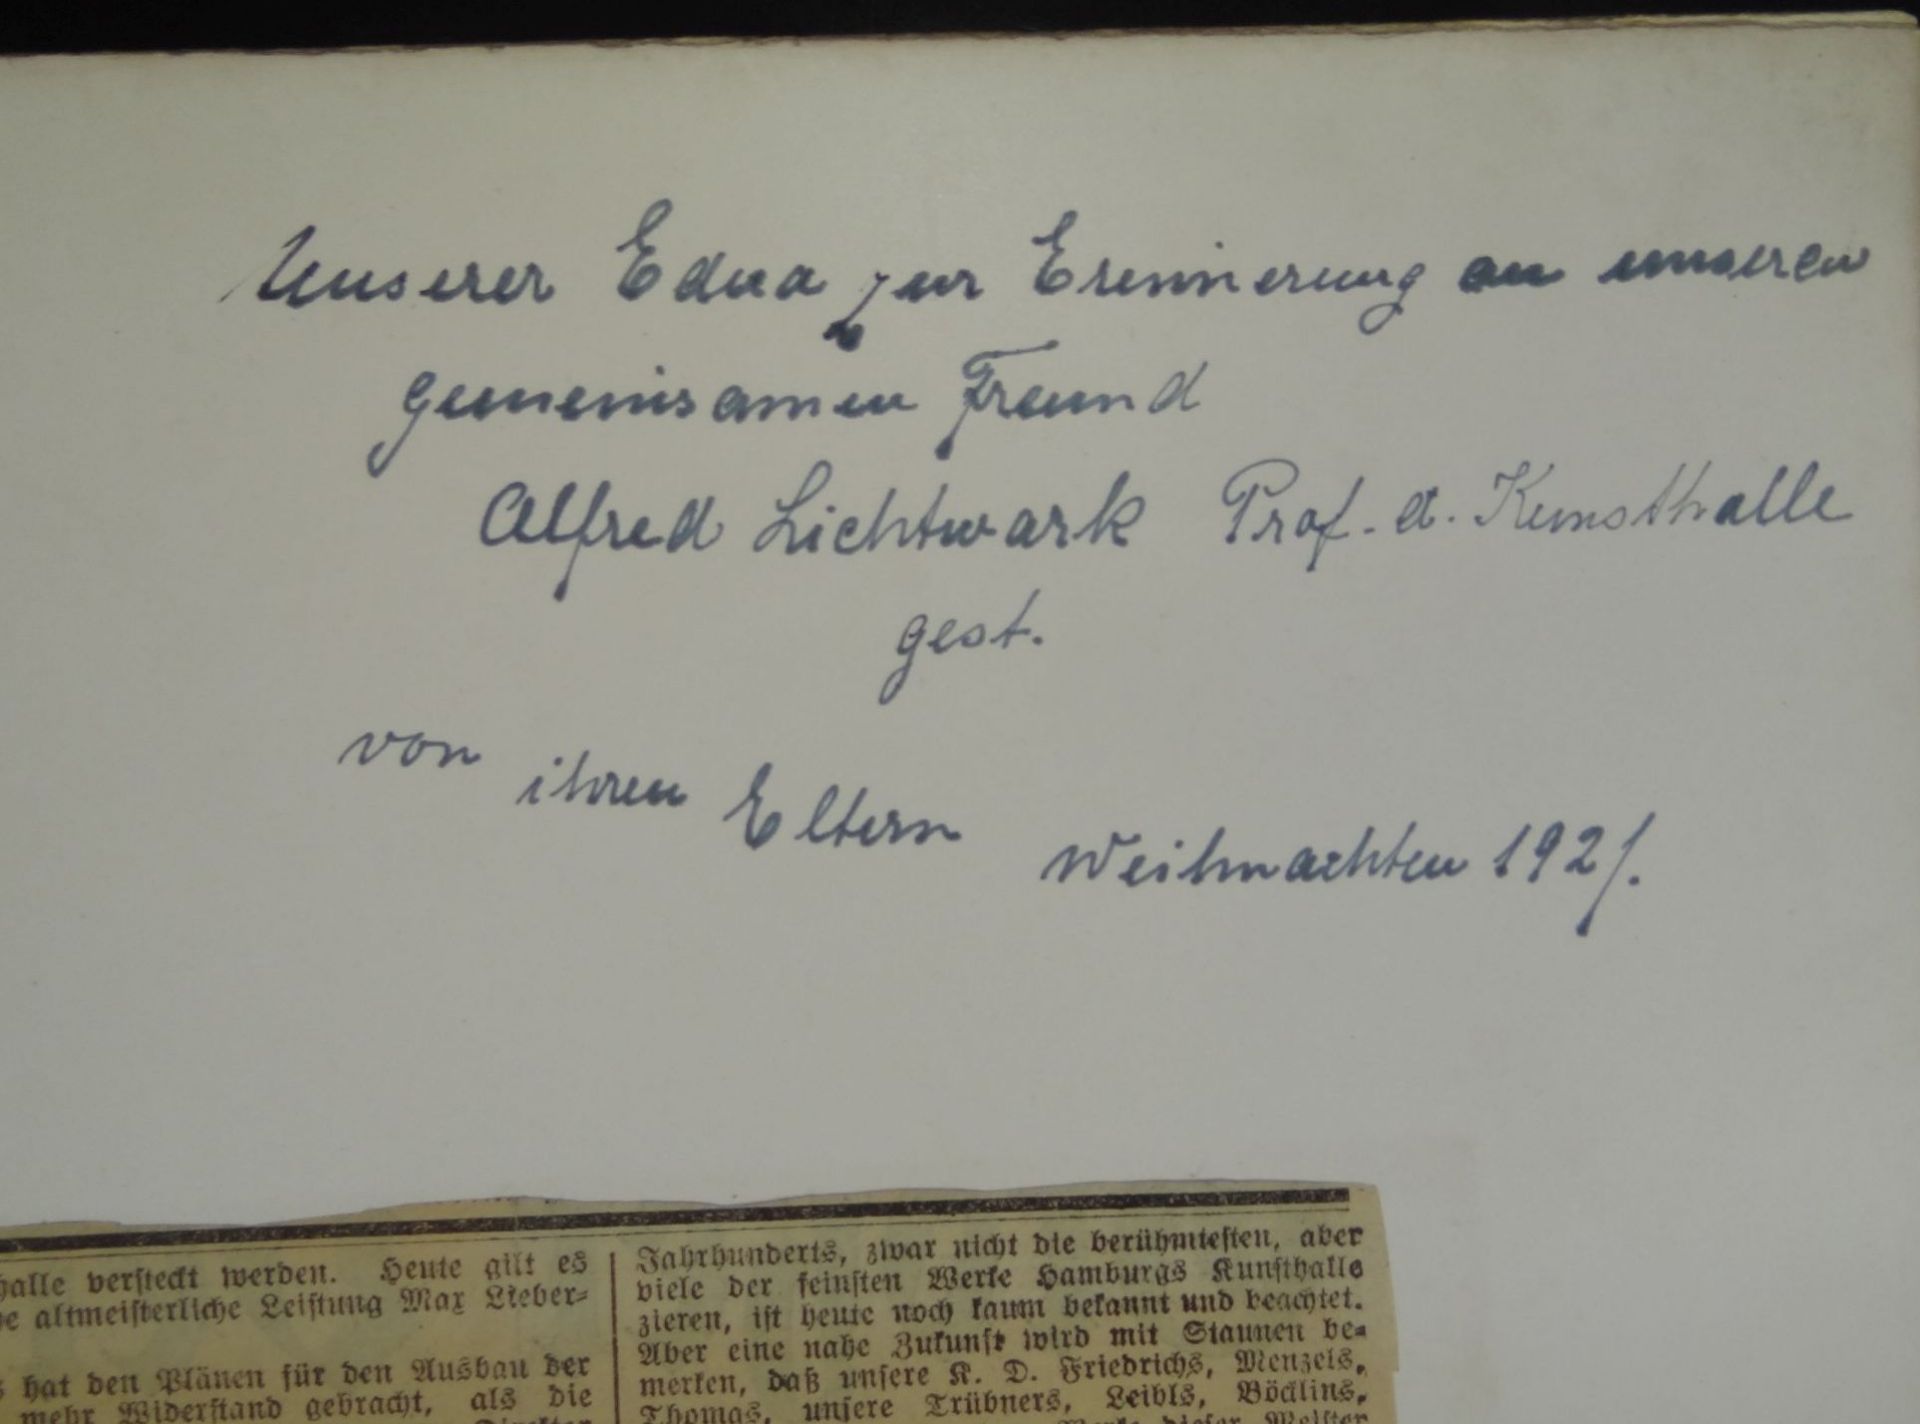 Unserer Edna zur Erinnerung an unseren
gemeinsamen Freund
Alfred Lichtwark Prof. d. Kunsthalle
gest.
von ihren Eltern Weihnachten 1921.
halle versteckt werden. Heute gilt es
altmeisterliche Leistung Max Lieber-
hat den Plänen für den Ausbau der
mehr Widerstand gebracht, als die
Jahrhunderts, zwar nicht die berühmtesten, aber
viele der feinsten Werke Hamburgs Kunsthalle
zieren, ist heute noch kaum bekannt und beachtet.
Aber eine nahe Zukunft wird mit Staunen be-
merken, daß unsere K. D. Friedrichs, Menzels,
Thomas, unsere Trübners, Leibls, Böcklins,
dieser Meister